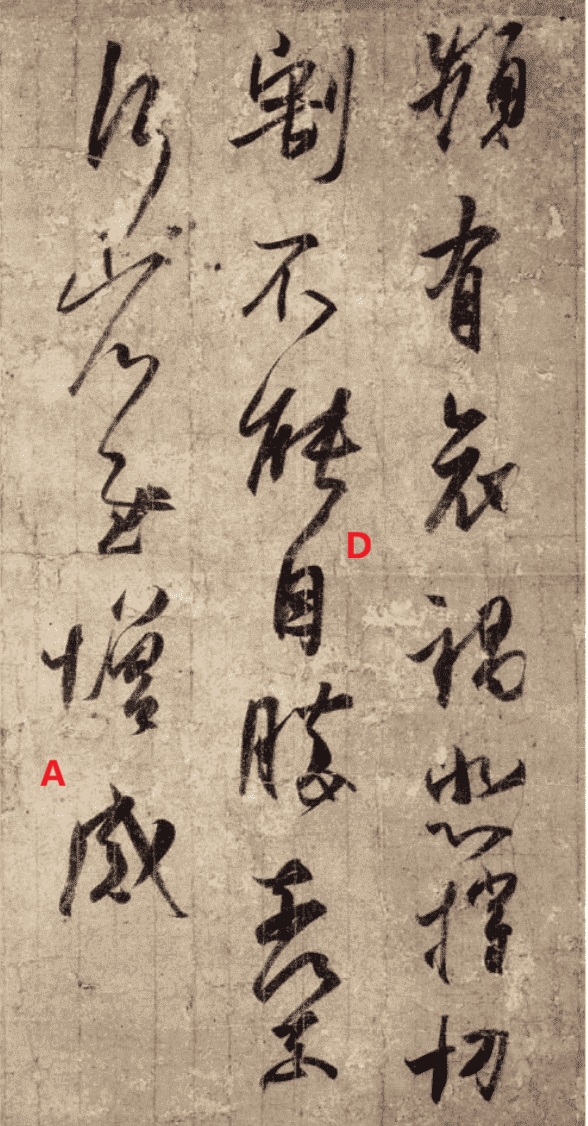 頻有哀禍悲摧切
割不能自勝奈何奈
何省慰增感
D
A